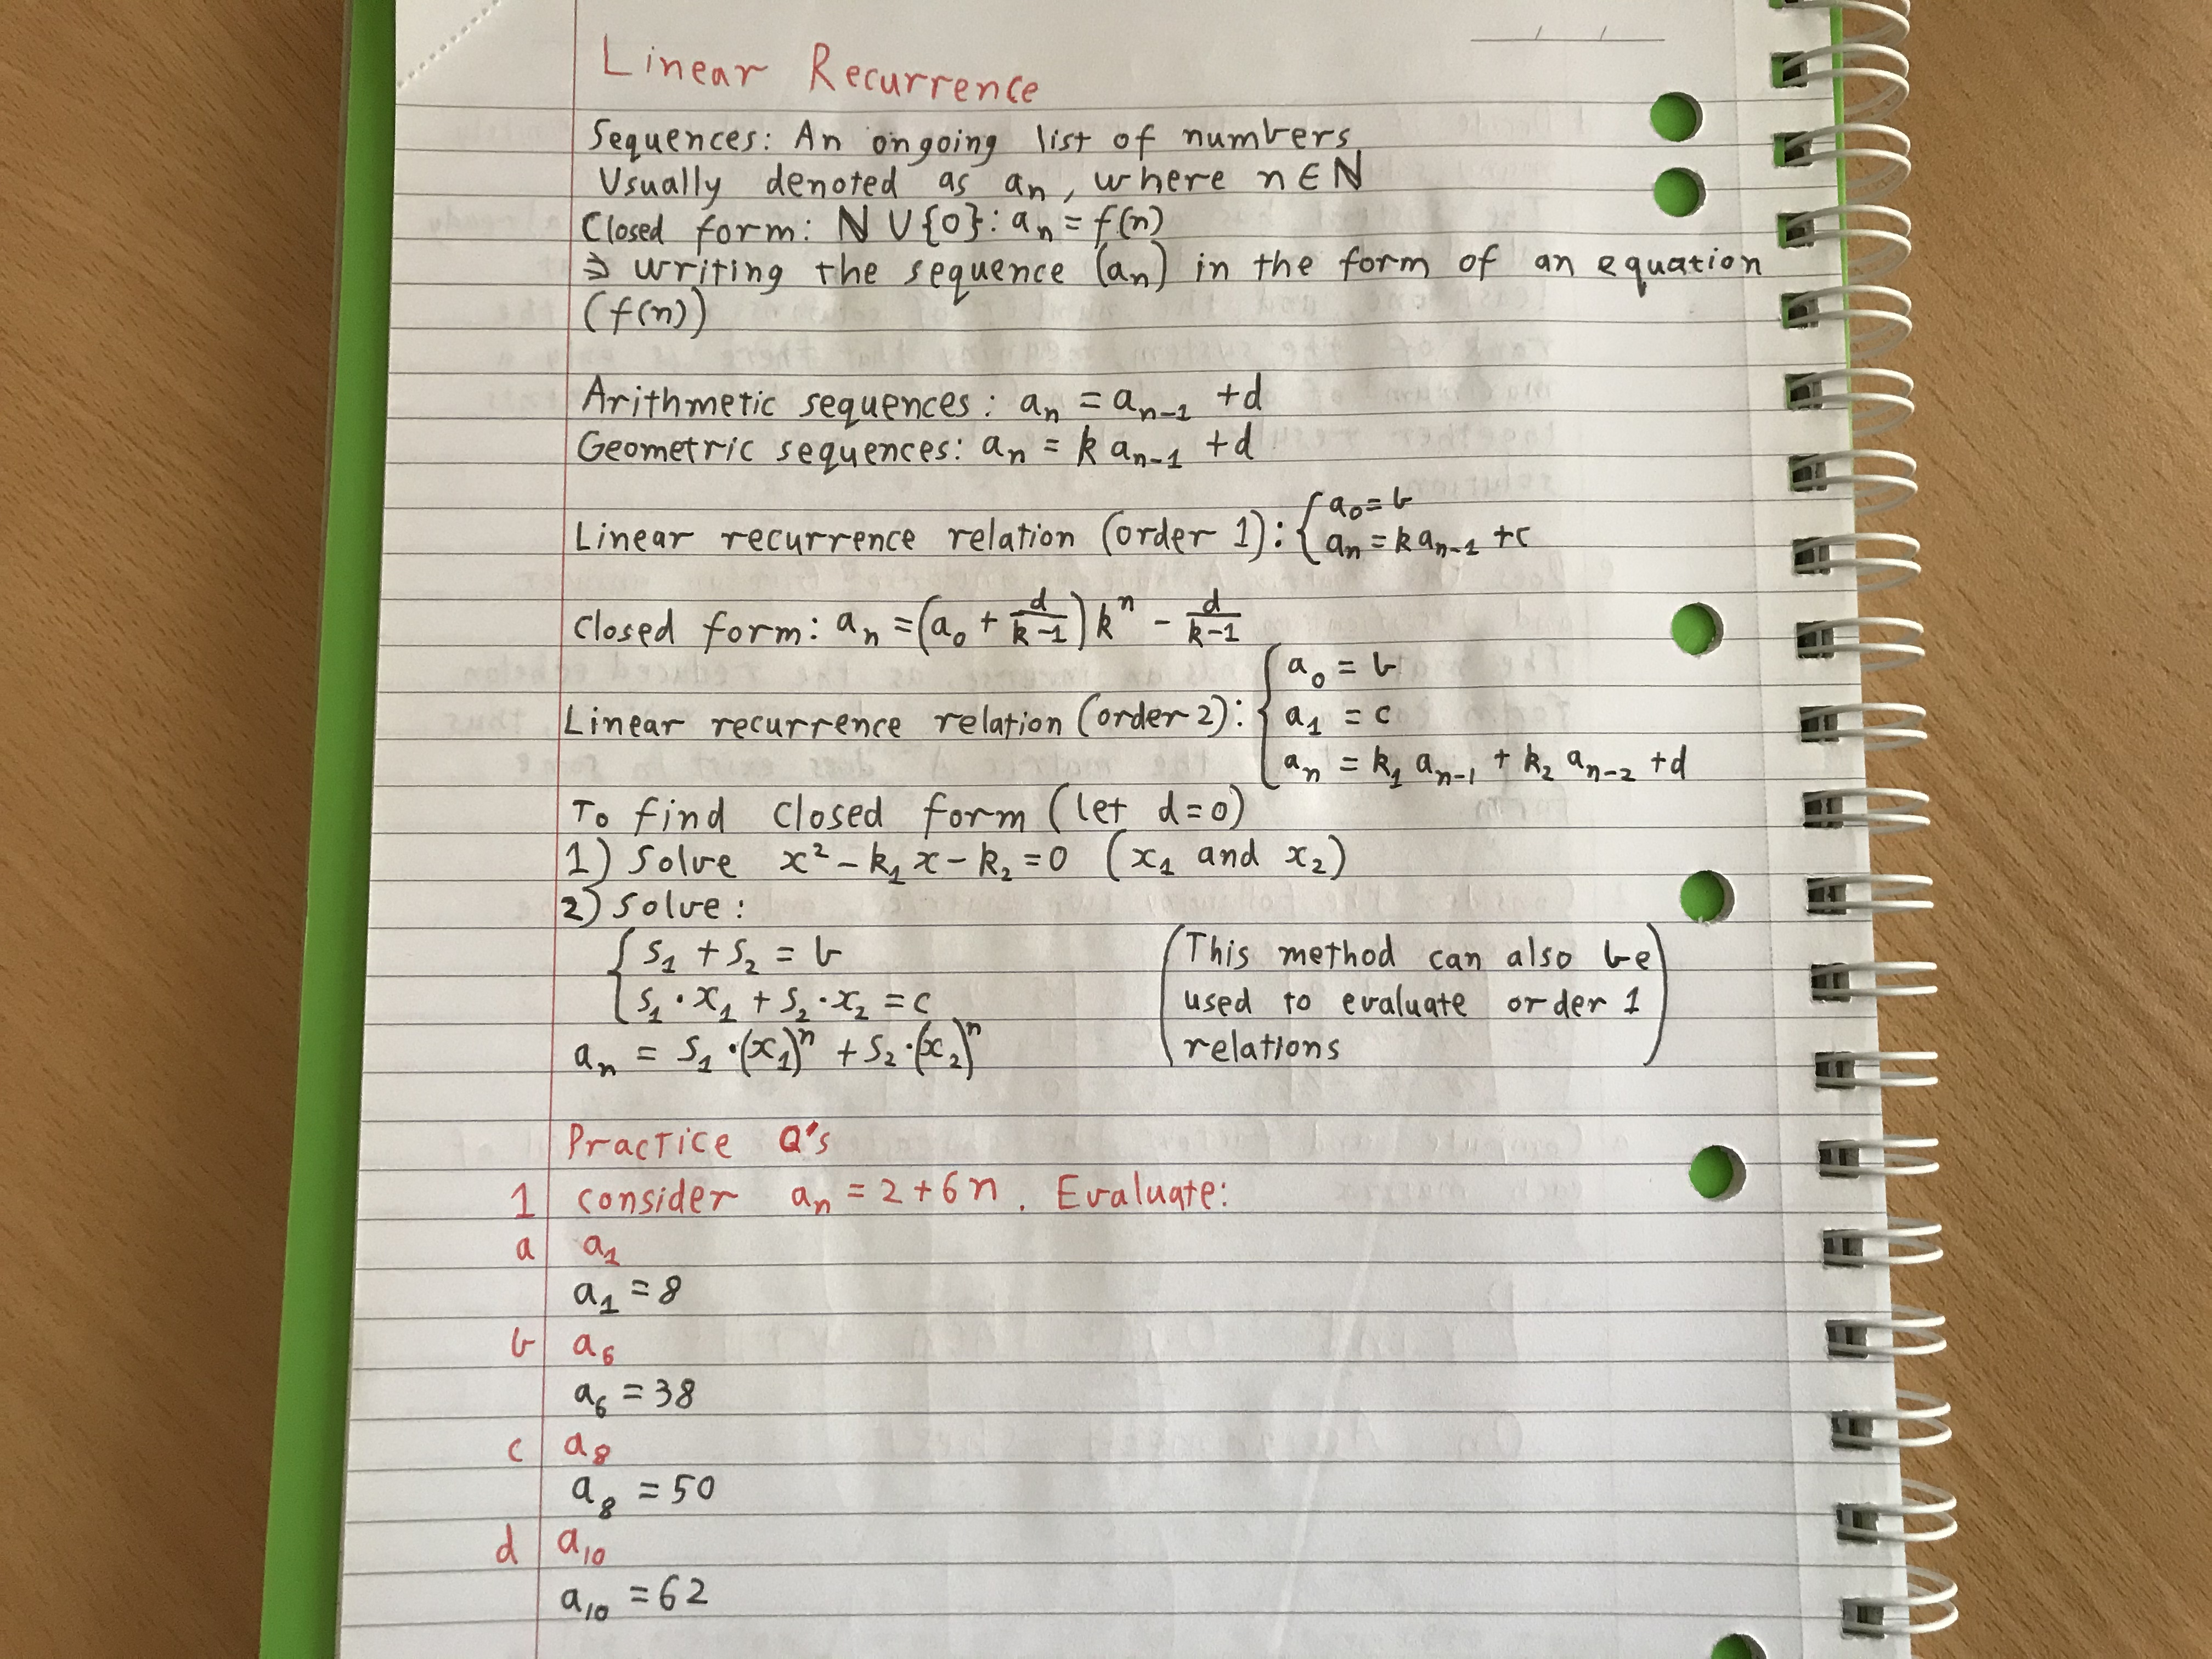 Linear Recurrence
Sequences: An ongoing list of numbers
Usually denoted as aₙ, where n∈ℕ
Closed form: ℕ∪{0}: aₙ = f(n)
⇒ writing the sequence (aₙ) in the form of an equation
(f(n))
Arithmetic sequences: aₙ = aₙ₋₁ + d
Geometric sequences: aₙ = k aₙ₋₁ + d
Linear recurrence relation (order 1): { a₀ = b
aₙ = kaₙ₋₁ + c
Closed form: aₙ = (a₀ + d/(k-1)) kⁿ - d/(k-1)
Linear recurrence relation (order 2): { a₀ = b
a₁ = c
aₙ = k₁ aₙ₋₁ + k₂ aₙ₋₂ + d
To find closed form (let d=0)
1) Solve x² - k₁x - k₂ = 0 (x₁ and x₂)
2) Solve:
{ s₁ + s₂ = b
s₁·x₁ + s₂·x₂ = c
aₙ = s₁·(x₁)ⁿ + s₂·(x₂)ⁿ
(This method can also be
used to evaluate order 1
relations)
Practice Q's
1 consider aₙ = 2 + 6n. Evaluate:
a a₁
a₁ = 8
b a₆
a₆ = 38
c a₈
a₈ = 50
d a₁₀
a₁₀ = 62